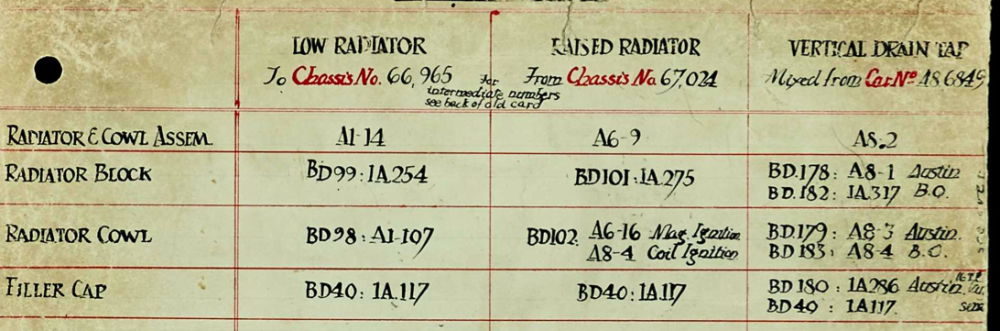 LOW RADIATOR RAISED RADIATOR VERTICAL DRAIN TAP
To Chassis No. 66,965 for intermediate numbers see back of old card From Chassis No. 67,024 Mixed from Car No A8.6849
RADIATOR & COWL ASSEM. A1-14 A6-9 A8.2
RADIATOR BLOCK BD99: 1A254 BD101: 1A275 BD.178: A8-1 Austin
BD.182: 1A317 B.O.
RADIATOR COWL BD98: A1-107 BD102. A6-16 Mag Ignition BD179: A8-3 Austin.
A8-4 Coil Ignition BD183: A8-4 B.O.
FILLER CAP BD40: 1A117 BD40: 1A117 BD180: 1A286 Austin
BD40: 1A117.